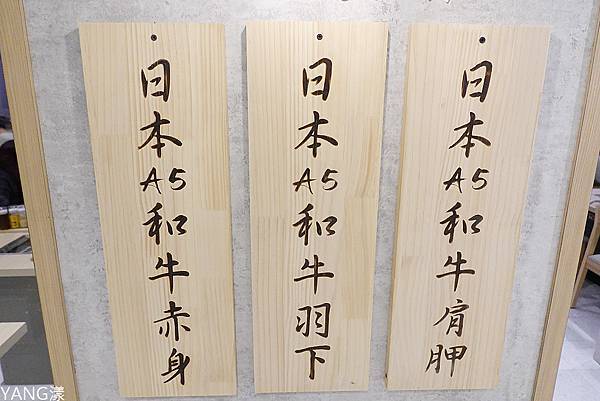 日本A5和牛赤身
日本A5和牛羽下
日本A5和牛肩胛
YANG漾